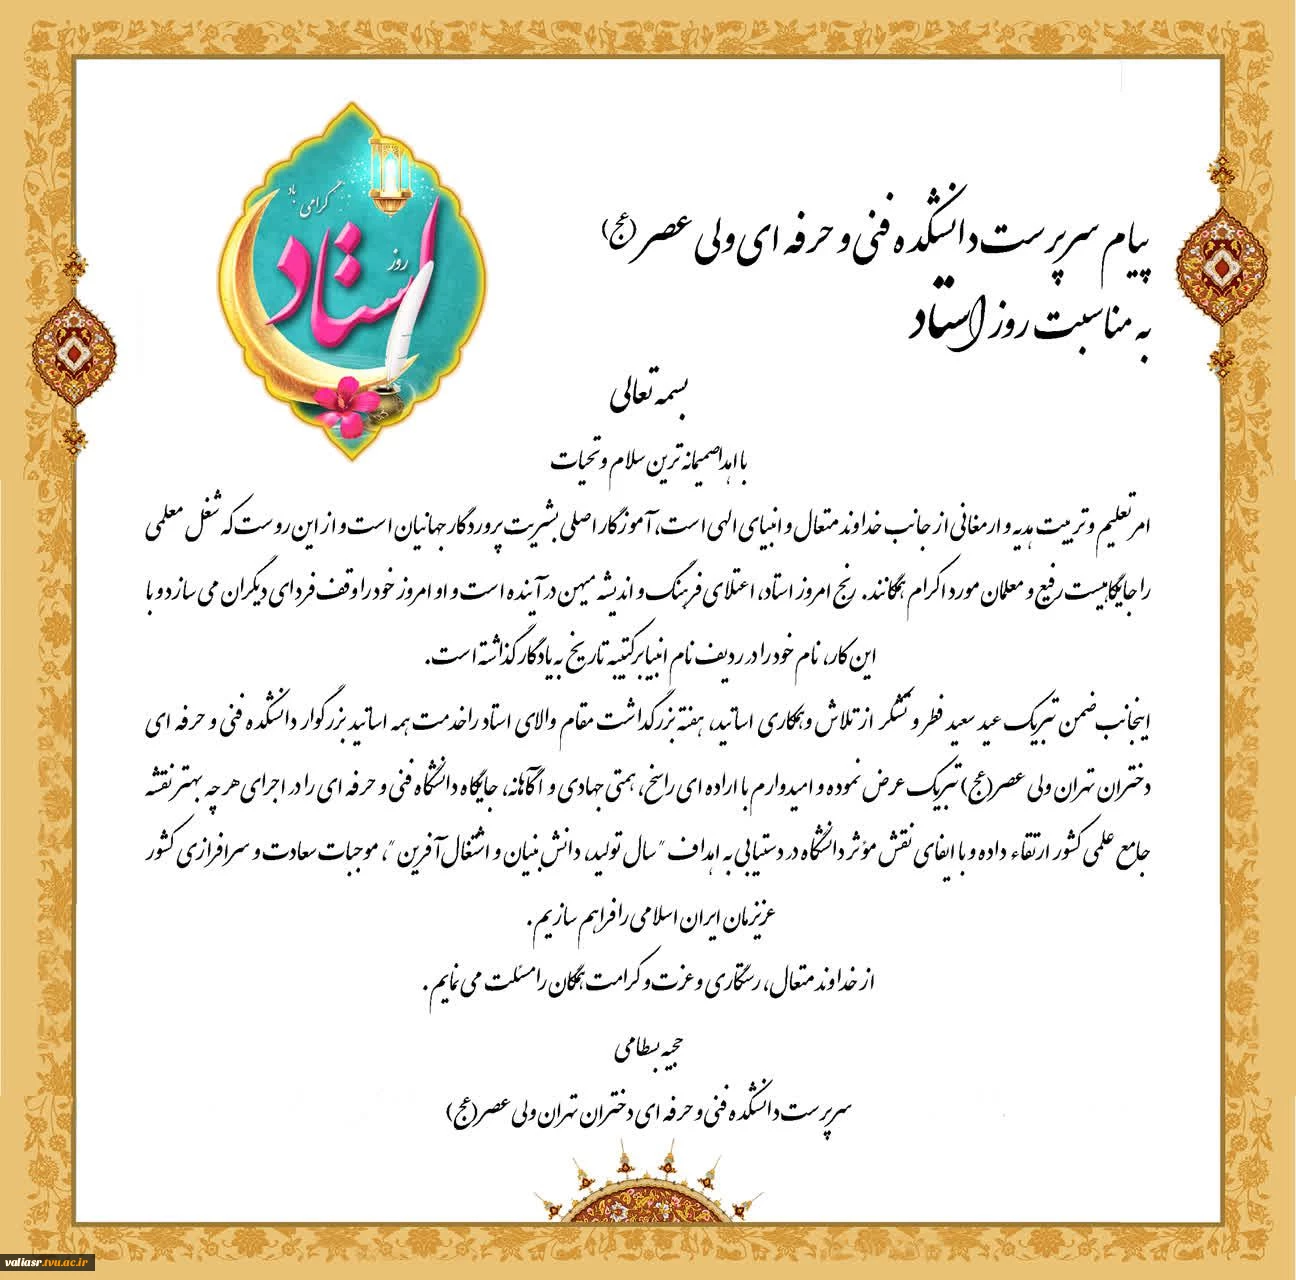 پیام سرپرست دانشکده فنی و حرفه ای ولی عصر (عج)
به مناسبت روز استاد
روز
استاد
گرامی باد
بسمه تعالی
با اهدا صمیمانه ترین سلام و تحیات
امر تعلیم و تربیت هدیه و ارمغانی از جانب خداوند متعال و انبیای الهی است، آموزگار اصلی بشریت پروردگار جهانیان است و از این روست که شغل معلمی
را جایگاهیست رفیع و معلمان مورد اکرام همگانند. رنج امروز استاد، اعتلای فرهنگ و اندیشه میهن در آینده است و او امروز خود را وقف فردای دیگران می سازد و با
این کار، نام خود را در ردیف نام انبیا بر کتیبه تاریخ به یادگار گذاشته است.
اینجانب ضمن تبریک عید سعید فطر و تشکر از تلاش و همکاری اساتید، هفته بزرگداشت مقام والای استاد را خدمت همه اساتید بزرگوار دانشکده فنی و حرفه ای
دختران تهران ولی عصر(عج) تبریک عرض نموده و امیدوارم با اراده ای راسخ، همتی جهادی و آگاهانه، جایگاه دانشگاه فنی و حرفه ای را در اجرای هر چه بهتر نقشه
جامع علمی کشور ارتقاء داده و با ایفای نقش مؤثر دانشگاه در دستیابی به اهداف "سال تولید، دانش بنیان و اشتغال آفرین "، موجبات سعادت و سرافرازی کشور
عزیزمان ایران اسلامی را فراهم سازیم .
از خداوند متعال، رستگاری و عزت و کرامت همگان را مسئلت می نمایم .
حجیه بسطامی
سرپرست دانشکده فنی و حرفه ای دختران تهران ولی عصر(عج)
valiasr.tvu.ac.ir